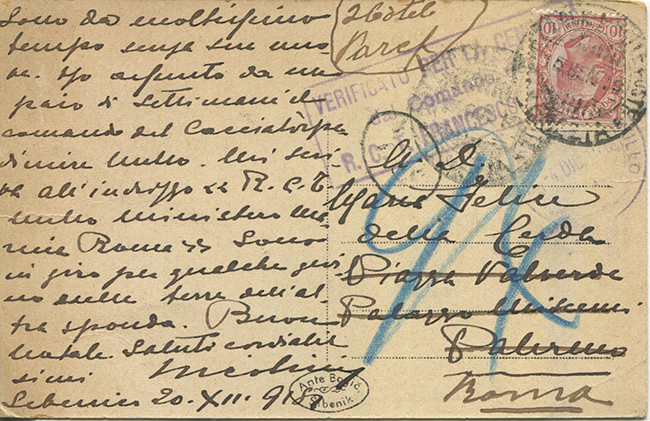 Sono da moltissimo
tempo senza sue nuo
ve. Ho assunto da un
paio di settimane il
comando del Cacciatorpe
diniere Nullo. Mi scri
va all'indirizzo R.C.T.
Nullo Ministero Ma
rina Roma. Sono
in giro per qualche gior
no nelle terre dell'al
tra sponda. Buon
Natale. Saluti cordialis
simi
Sebenico 20-XII-918
Hôtel
VERIFICATO PER CENSURA
dal Comando
R. C. FRANCESCO
10
A. D.
Felice
della Cerda
Piazza Valverde
Palazzo
Palermo
Roma
Ante
Šibenik